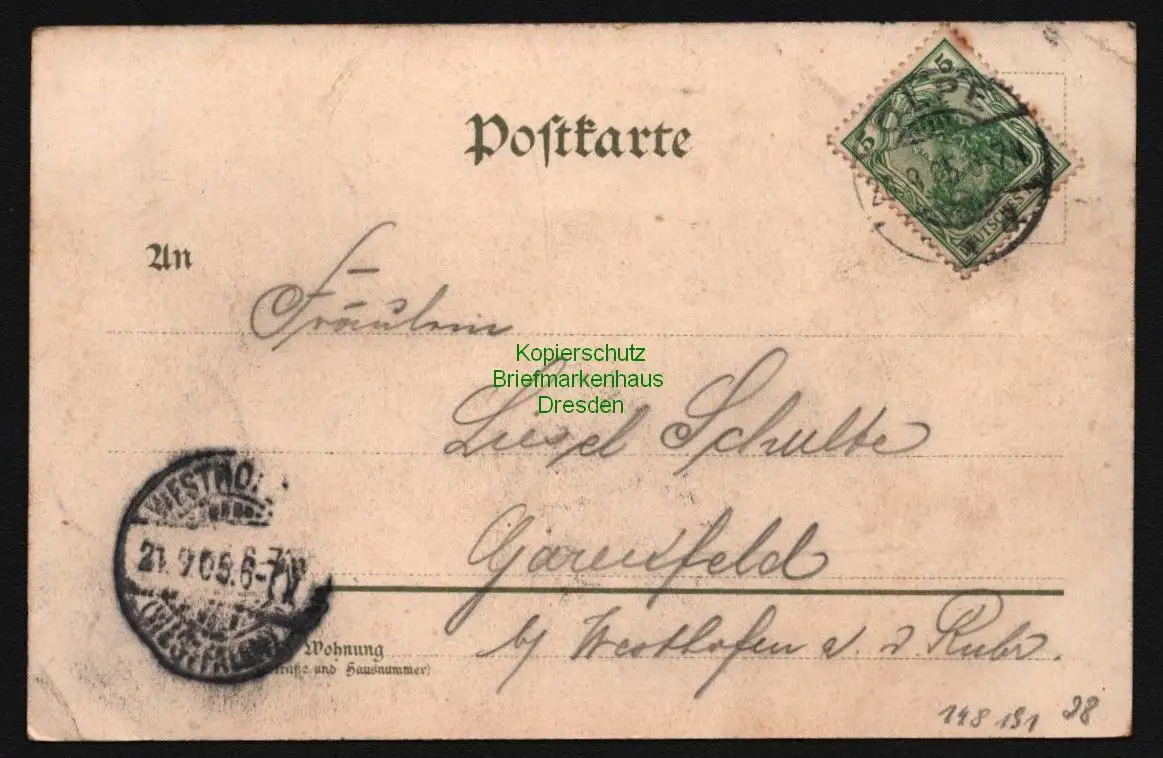 Postkarte
5
5
DEUTSCHES
An
Fräulein
Kopierschutz
Briefmarkenhaus
Dresden
Liesel Schulte
Garenfeld
b/ Westhofen a. d. Ruhr.
WESTHO
21.9.05.6-7N
(WESTFALEN)
Wohnung
(Straße und Hausnummer)
148 191 98